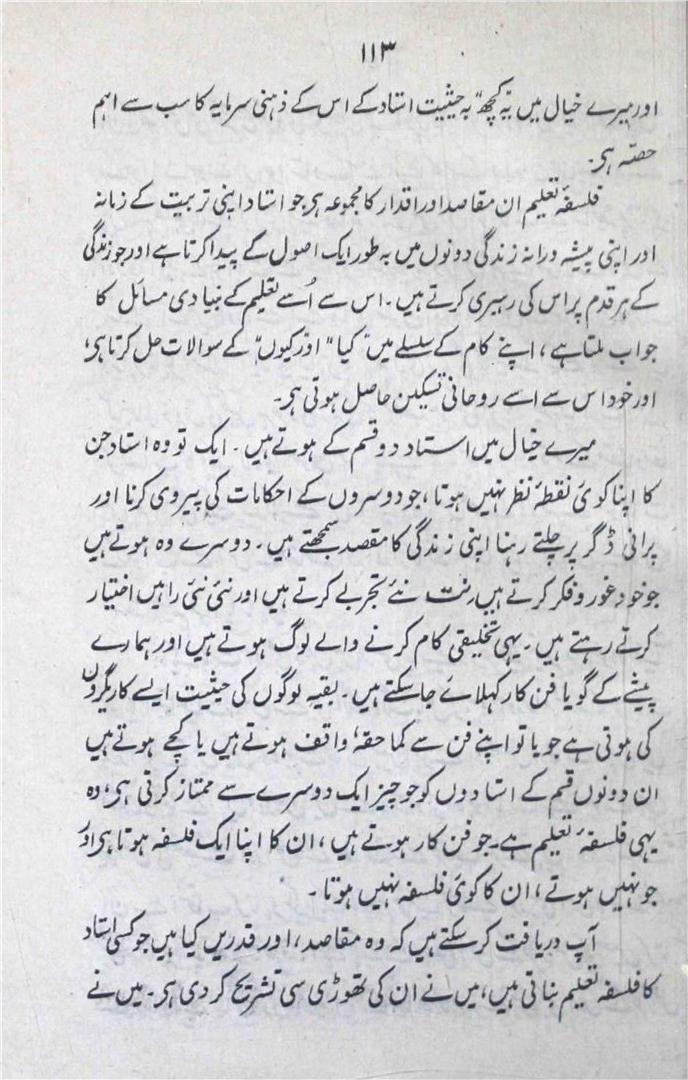 ۱۱۳
اور میرے خیال میں یہ "کچھ" بہ حیثیت استاد کے اس کے ذہنی سرمایہ کا سب سے اہم
حصّہ ہی۔
فلسفۂ تعلیم ان مقاصد اور اقدار کا مجموعہ ہی جو استاد اپنی تربیت کے زمانہ
اور اپنی پیشہ ورانہ زندگی دونوں میں بہ طور ایک اصول کے پیدا کرتا ہے اور جو زندگی
کے ہر قدم پر اس کی رہبری کرتے ہیں۔ اس سے اُسے تعلیم کے بنیادی مسائل کا
جواب ملتا ہے، اپنے کام کے سلسلے میں "کیا" اور "کیوں" کے سوالات حل کرتا ہی،
اور خود اس سے اسے روحانی تسکین حاصل ہوتی ہی۔
میرے خیال میں استاد دو قسم کے ہوتے ہیں۔ ایک تو وہ استاد جن
کا اپنا کوئی نقطۂ نظر نہیں ہوتا، جو دوسروں کے احکامات کی پیروی کرنا اور
پرانی ڈگر پر چلتے رہنا اپنی زندگی کا مقصد سمجھتے ہیں۔ دوسرے وہ ہوتے ہیں
جو خود غور و فکر کرتے ہیں، نت نئے تجربے کرتے ہیں اور نئی نئی راہیں اختیار
کرتے رہتے ہیں۔ یہی تخلیقی کام کرنے والے لوگ ہوتے ہیں اور ہمارے
پیشے کے گویا فن کار کہلائے جا سکتے ہیں۔ بقیہ لوگوں کی حیثیت ایسے کاریگروں
کی ہوتی ہے جو یا تو اپنے فن سے کما حقہٗ واقف ہوتے ہیں یا کچے ہوتے ہیں
ان دونوں قسم کے استادوں کو جو چیز ایک دوسرے سے ممتاز کرتی ہی، وہ
یہی فلسفۂ تعلیم ہے۔ جو فن کار ہوتے ہیں، ان کا اپنا ایک فلسفہ ہوتا ہی اور
جو نہیں ہوتے، ان کا کوئی فلسفہ نہیں ہوتا۔
آپ دریافت کر سکتے ہیں کہ وہ مقاصد، اور قدریں کیا ہیں جو کسی استاد
کا فلسفہ تعلیم بناتی ہیں، میں نے ان کی تھوڑی سی تشریح کر دی ہی۔ میں نے